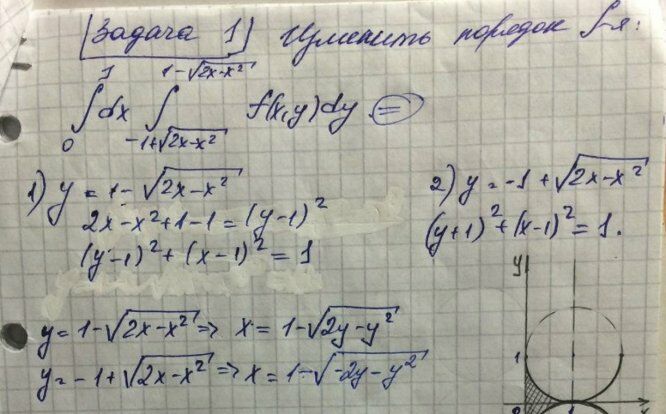 [Задача 1] Изменить порядок ∫-я:
∫₀¹ dx ∫_{-1+√(2x-x²)}^{1-√(2x-x²)} f(x,y)dy =
1) y = 1-√(2x-x²)
2x-x²+1-1=(y-1)²
(y-1)²+(x-1)²=1
2) y=-1+√(2x-x²)
(y+1)²+(x-1)²=1.
y=1-√(2x-x²) => x=1-√(2y-y²)
y=-1+√(2x-x²) => x=1-√(-2y-y²)
y
1